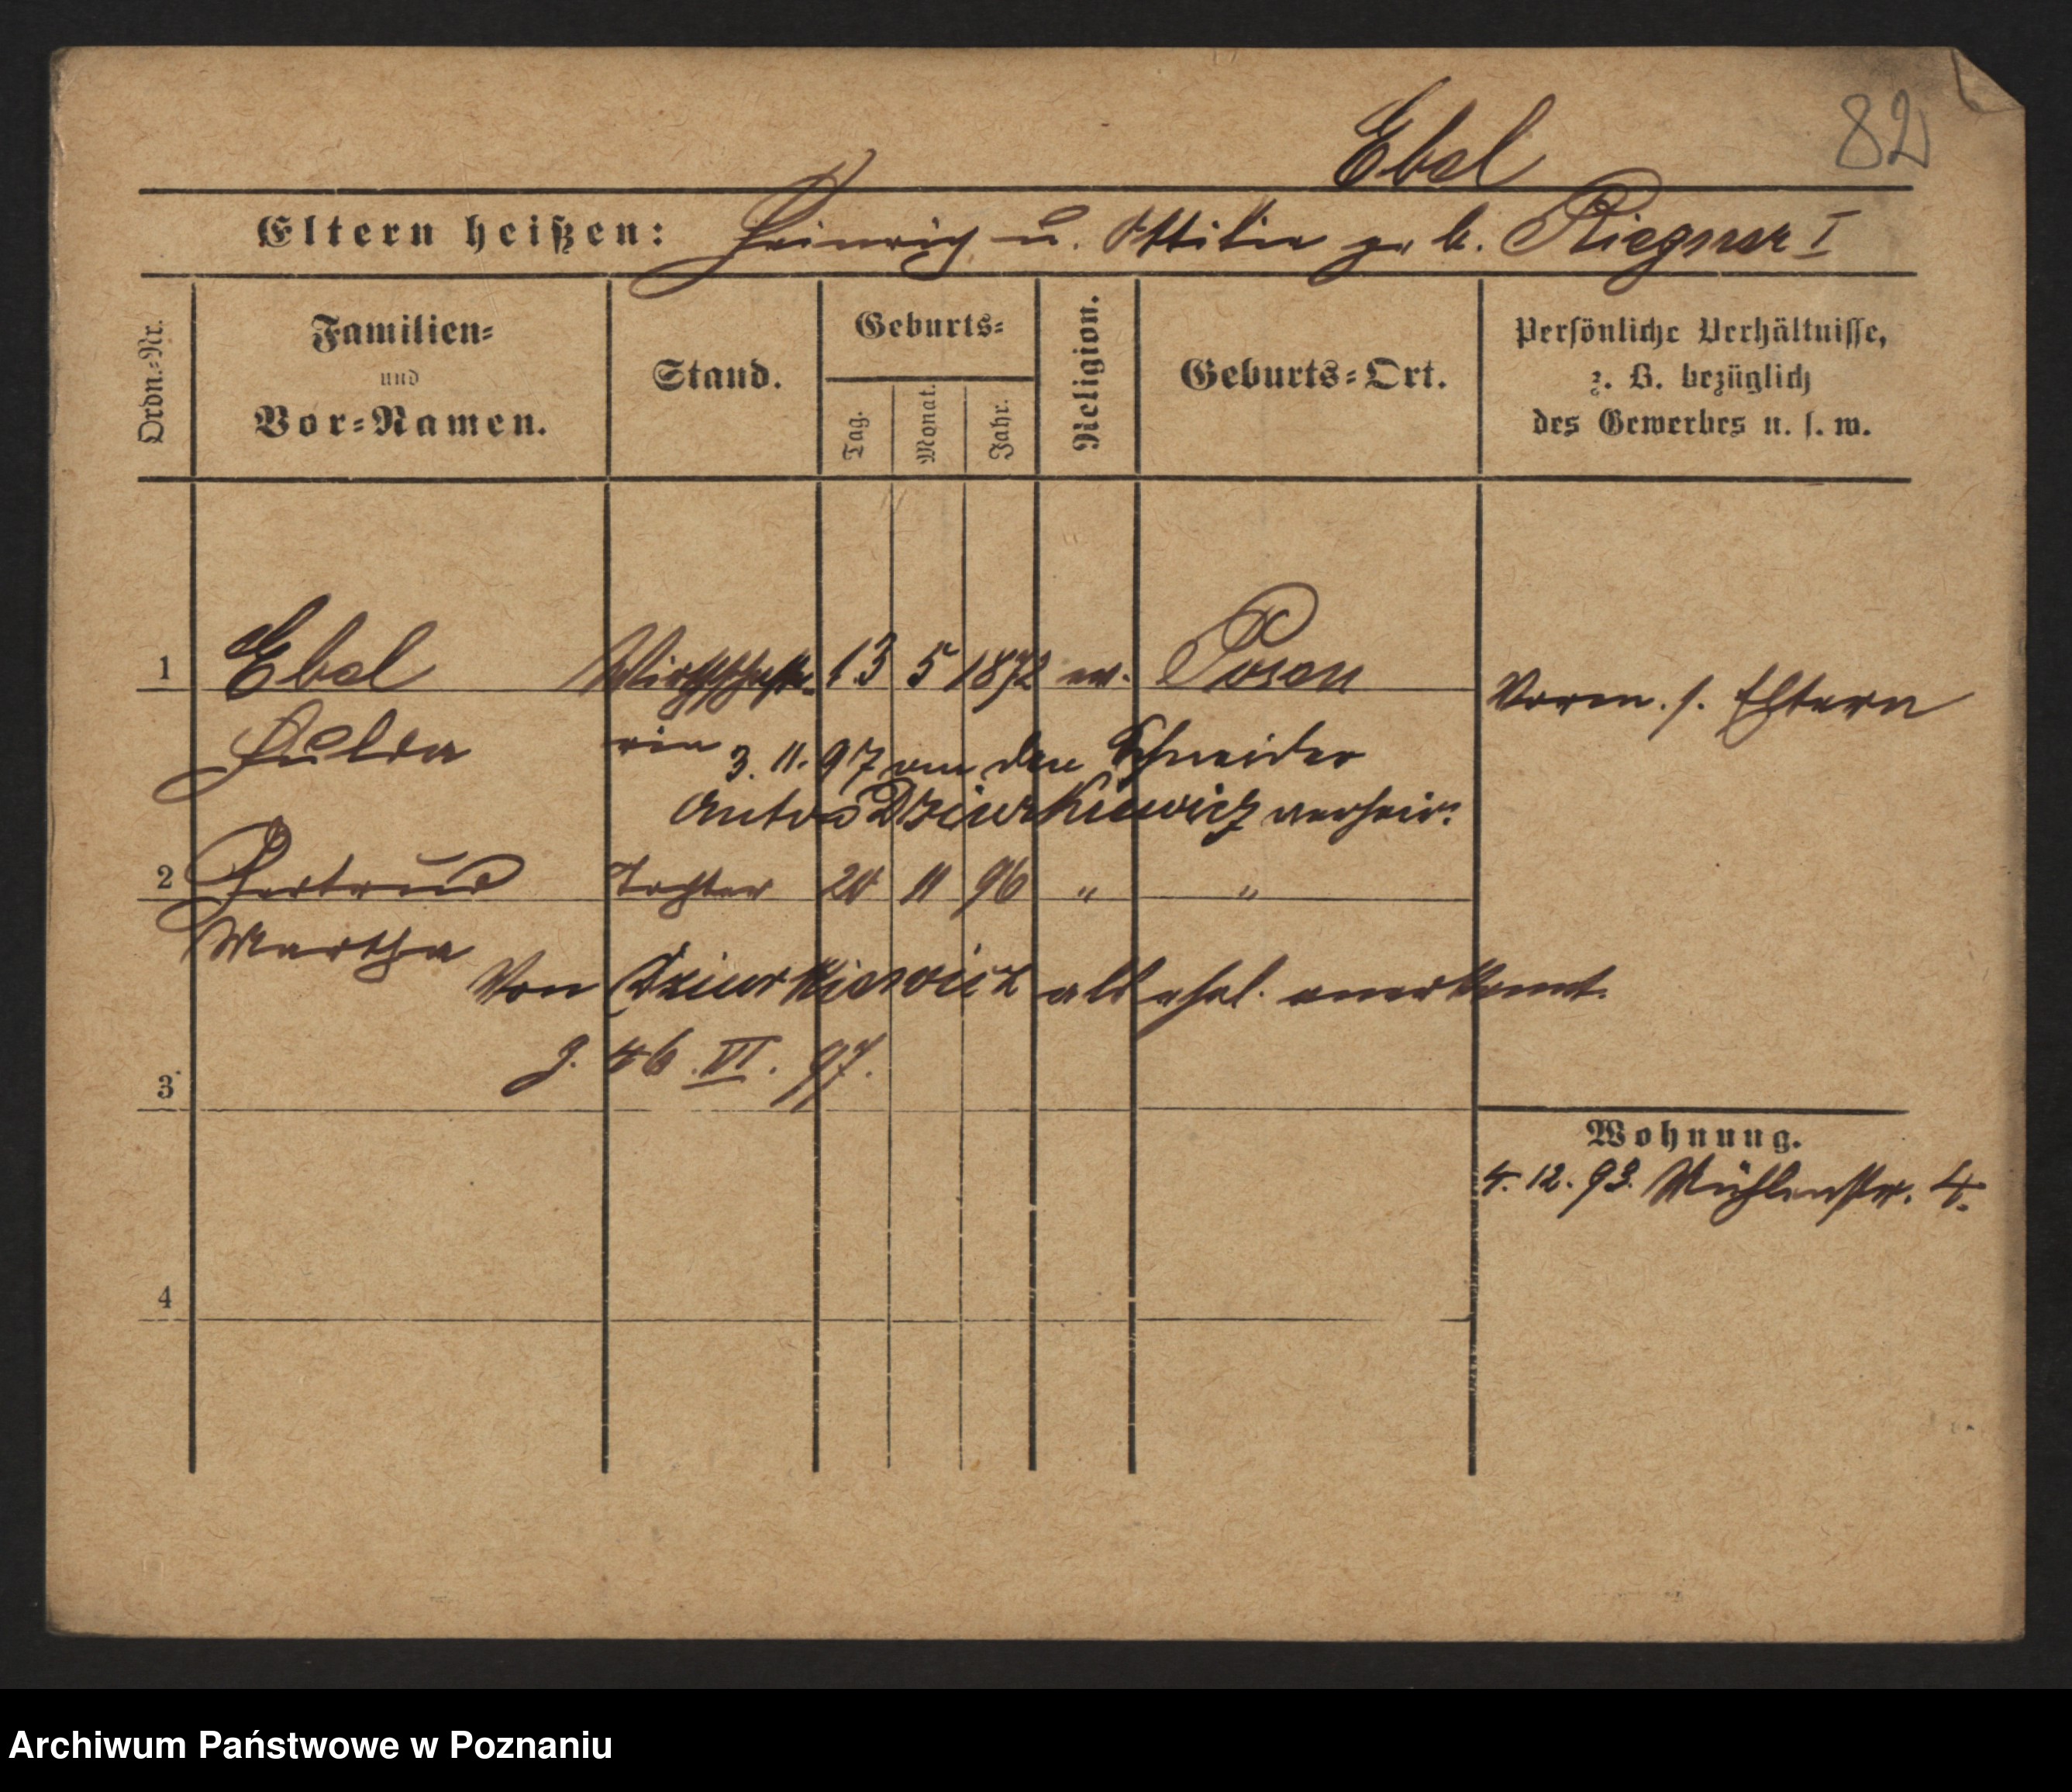 82
Ebel
Eltern heißen: Heinrich u. Ottilie geb. Riegner I
Ordn.-Nr.
Familien-
und
Vor-Namen.
Stand.
Geburts-
Tag.
Monat.
Jahr.
Religion.
Geburts-Ort.
Persönliche Verhältnisse,
z. B. bezüglich
des Gewerbes u. s. w.
1 Ebel Wirthschafte- 13 5 1872 ev. Posen
Vorm. s. Eltern
Hulda rin 3. 11. 97 den Schneider
Anton Dziurkiewicz verheir.
2 Gertrud Tochter 20 11 96 " "
Martha
Von Dziurkiewicz als ehel. anerkannt.
J. 46. VI. 97.
3
Wohnung.
4. 12. 93. Mühlenstr. 4.
4
Archiwum Państwowe w Poznaniu